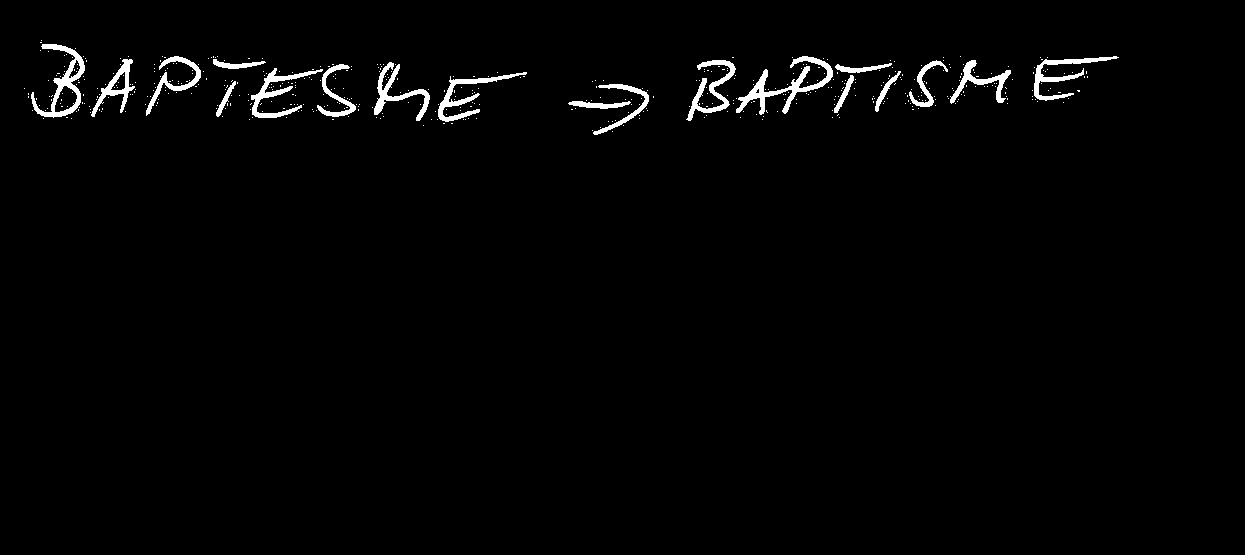 BAPTESME → BAPTISME